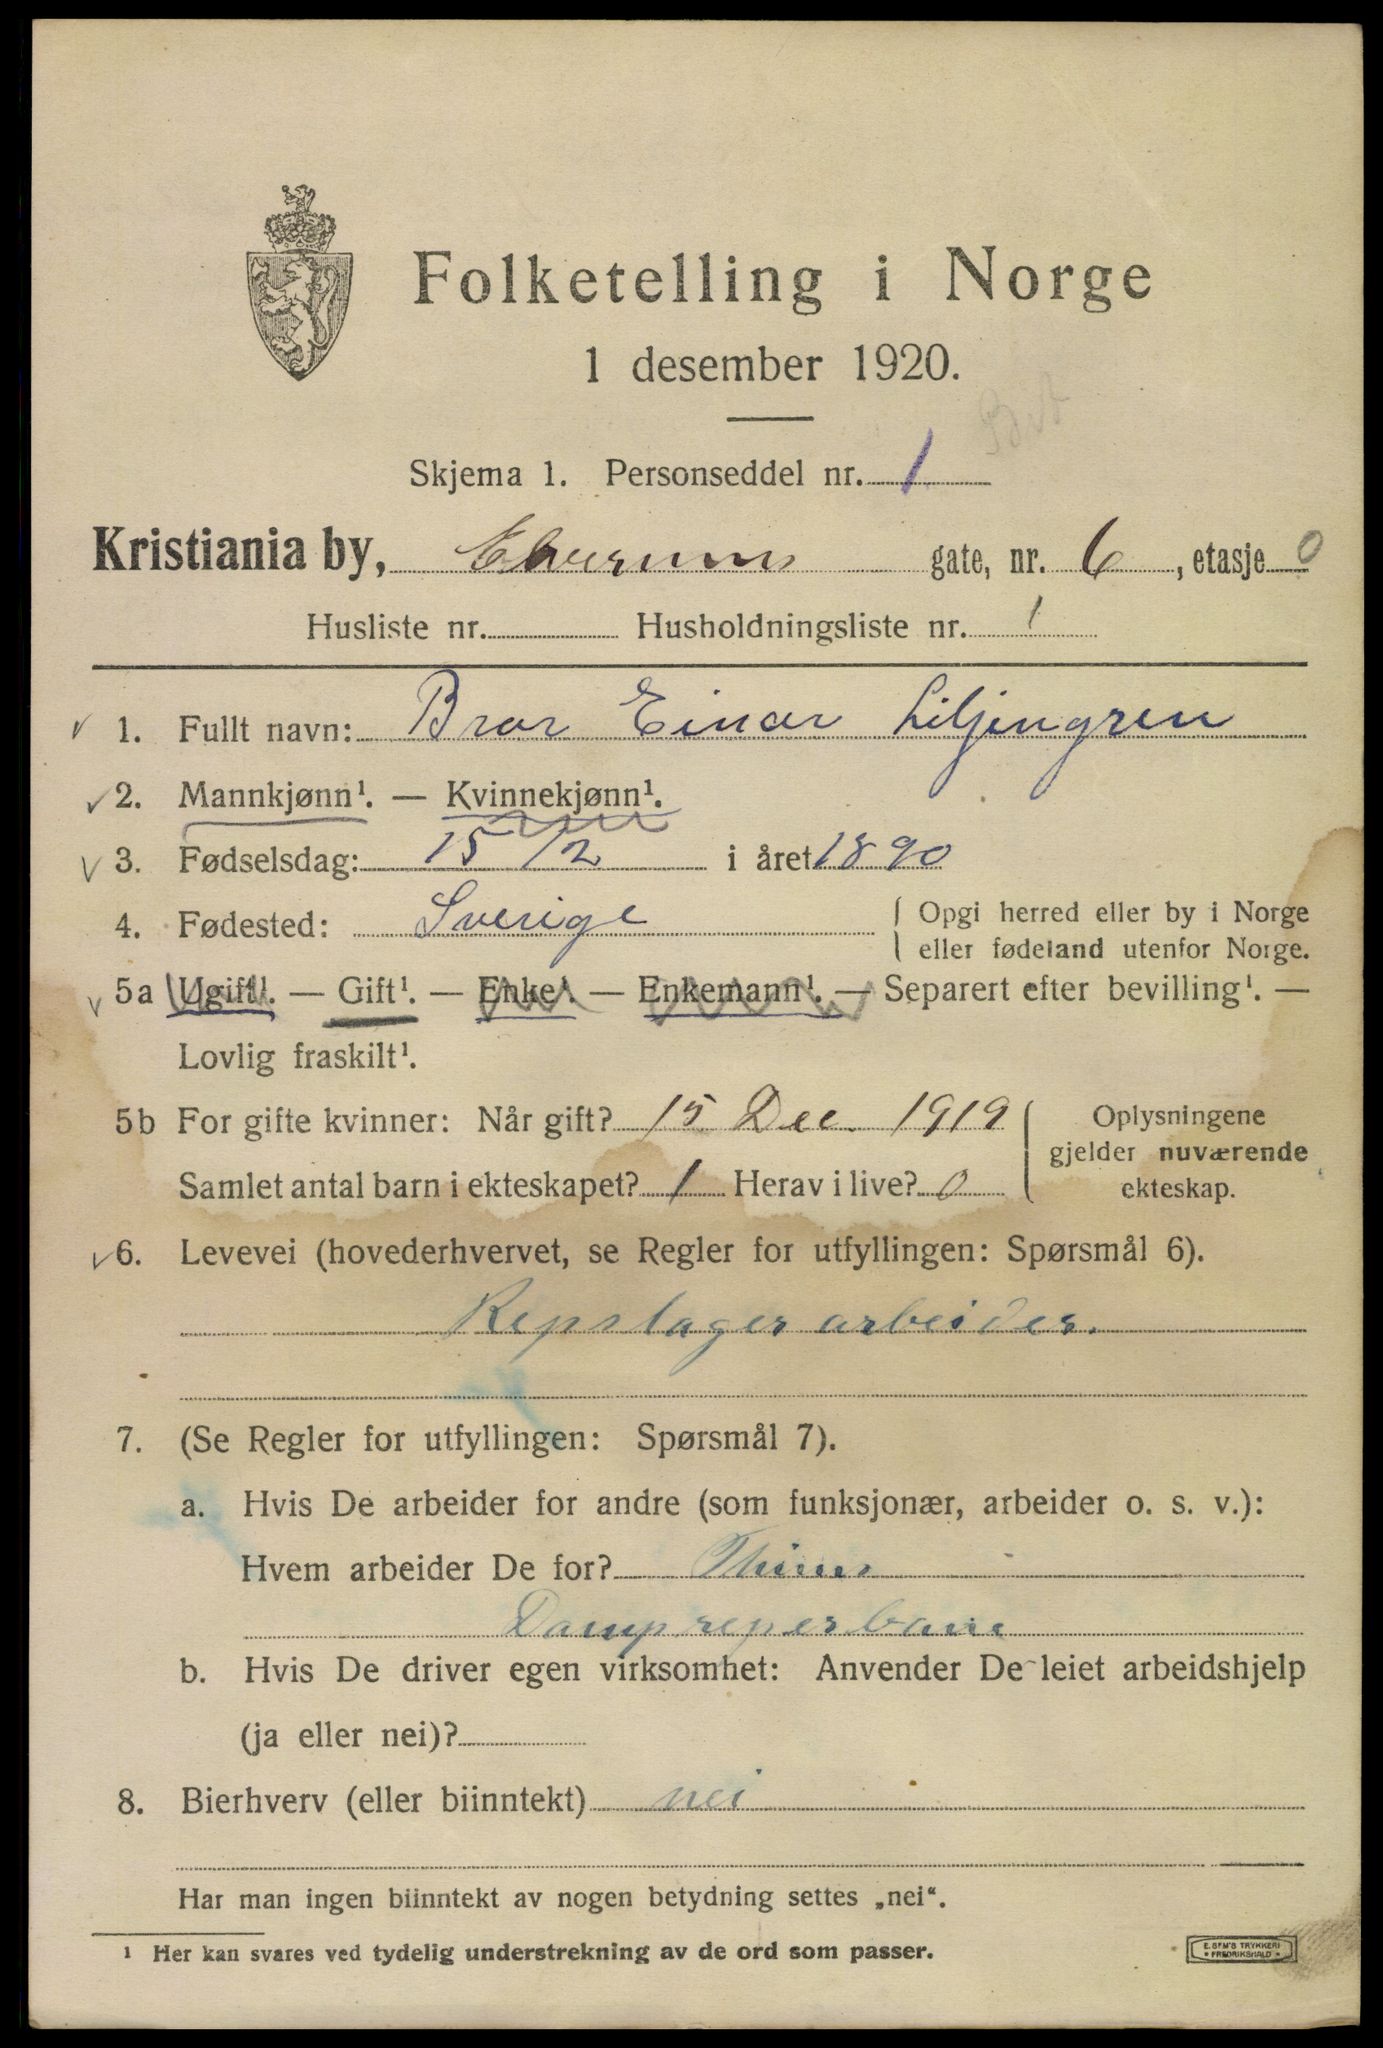 Folketelling i Norge
1 desember 1920.
Skjema 1. Personseddel nr. 1
Kristiania by, Elverums gate, nr. 6, etasje 0
Husliste nr. Husholdningsliste nr. 1
1. Fullt navn: Bror Einar Liljengren
2. Mannkjønn¹. — Kvinnekjønn¹.
3. Fødselsdag: 15/2 i året 1890
4. Fødested: Sverige { Opgi herred eller by i Norge
eller fødeland utenfor Norge.
5a Ugift¹. — Gift¹. — Enke¹. — Enkemann¹. — Separert efter bevilling¹. —
Lovlig fraskilt¹.
5b For gifte kvinner: Når gift? 15 Dec. 1919
Samlet antal barn i ekteskapet? 1 Herav i live? 0
Oplysningene
gjelder nuværende
ekteskap.
6. Levevei (hovederhvervet, se Regler for utfyllingen: Spørsmål 6).
Repslager arbeider.
7. (Se Regler for utfyllingen: Spørsmål 7).
a. Hvis De arbeider for andre (som funksjonær, arbeider o. s. v.):
Hvem arbeider De for? Thines
Dampreperbane
b. Hvis De driver egen virksomhet: Anvender De leiet arbeidshjelp
(ja eller nei)?
8. Bierhverv (eller biinntekt) nei
Har man ingen biinntekt av nogen betydning settes „nei“.
¹ Her kan svares ved tydelig understrekning av de ord som passer.
E. SEM'S TRYKKERI
• FREDRIKSHALD •